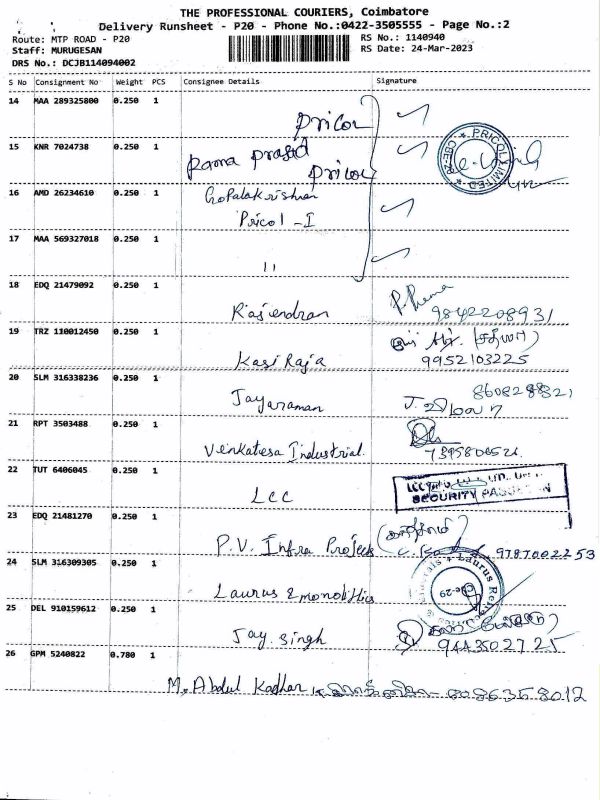 THE PROFESSIONAL COURIERS, Coimbatore
Delivery Runsheet - P20 - Phone No.:0422-3505555 - Page No.:2
Route: MTP ROAD - P20
RS No.: 1140940
Staff: MURUGESAN
RS Date: 24-Mar-2023
DRS No.: DCJB114094002
S No Consignment No Weight PCS Consignee Details Signature
14 MAA 289325800 0.250 1
Pricol
15 KNR 7024738 0.250 1
Rama Prasad
Pricol
PRICOL LIMITED
16 AMD 26234610 0.250 1
Gopalakrishnan
Pricol - I
17 MAA 569327018 0.250 1
11
18 EDQ 21479092 0.250 1
Rajendran
9842208931
19 TRZ 110012450 0.250 1
Kasi Raja
9952103225
20 SLM 316338236 0.250 1
Jayaraman
21 RPT 3503488 0.250 1
Venkatesa Industrial
22 TUT 6406045 0.250 1
LCC
SECURITY
23 EDQ 21481270 0.250 1
P.V. Infra Projects
9787002253
24 SLM 316309305 0.250 1
Laurus
25 DEL 910159612 0.250 1
Jay singh
9443502725
26 GPM 5240822 0.780 1
M. Abdul Kadhar